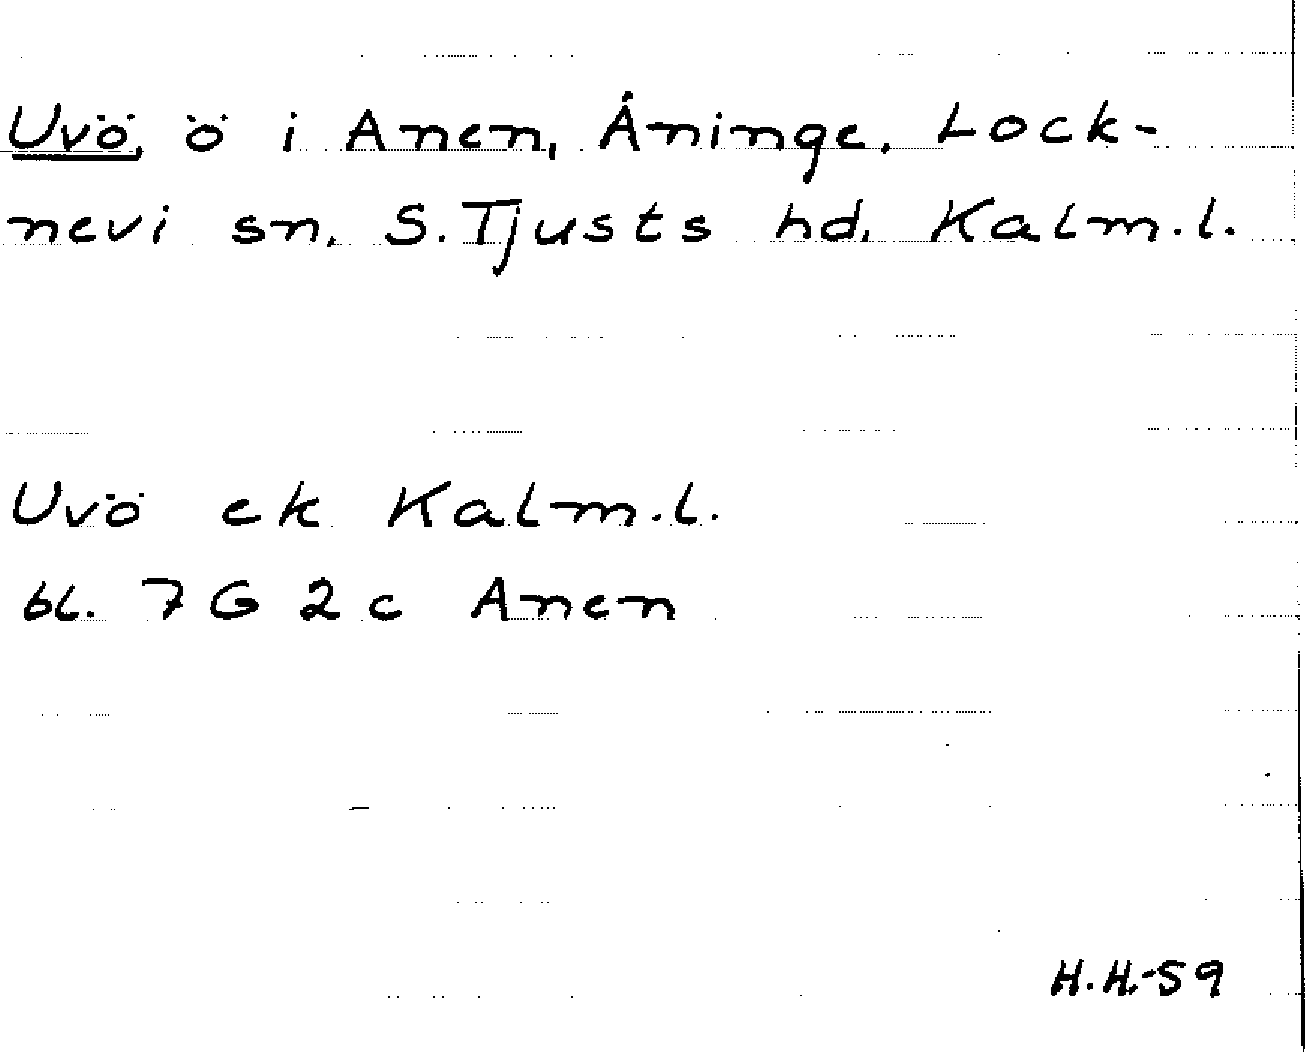 Uvö, ö i Anen, Åninge, Lock-
nevi sn, S. Tjusts hd, Kalm.l.
Uvö ek Kalm.l.
bl. 7 G 2 c Anen
H.H.-59